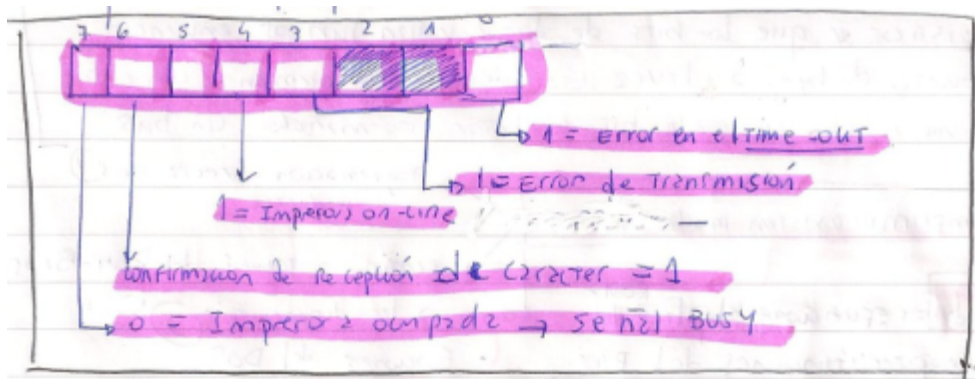 7 6 5 4 3 2 1 0
1 = Error en el TIME-OUT
1 = Error de Transmisión
1 = Impresora on-line
confirmacion de Recepción de caracter = 1
0 = Impresora ocupada → señal BUSY